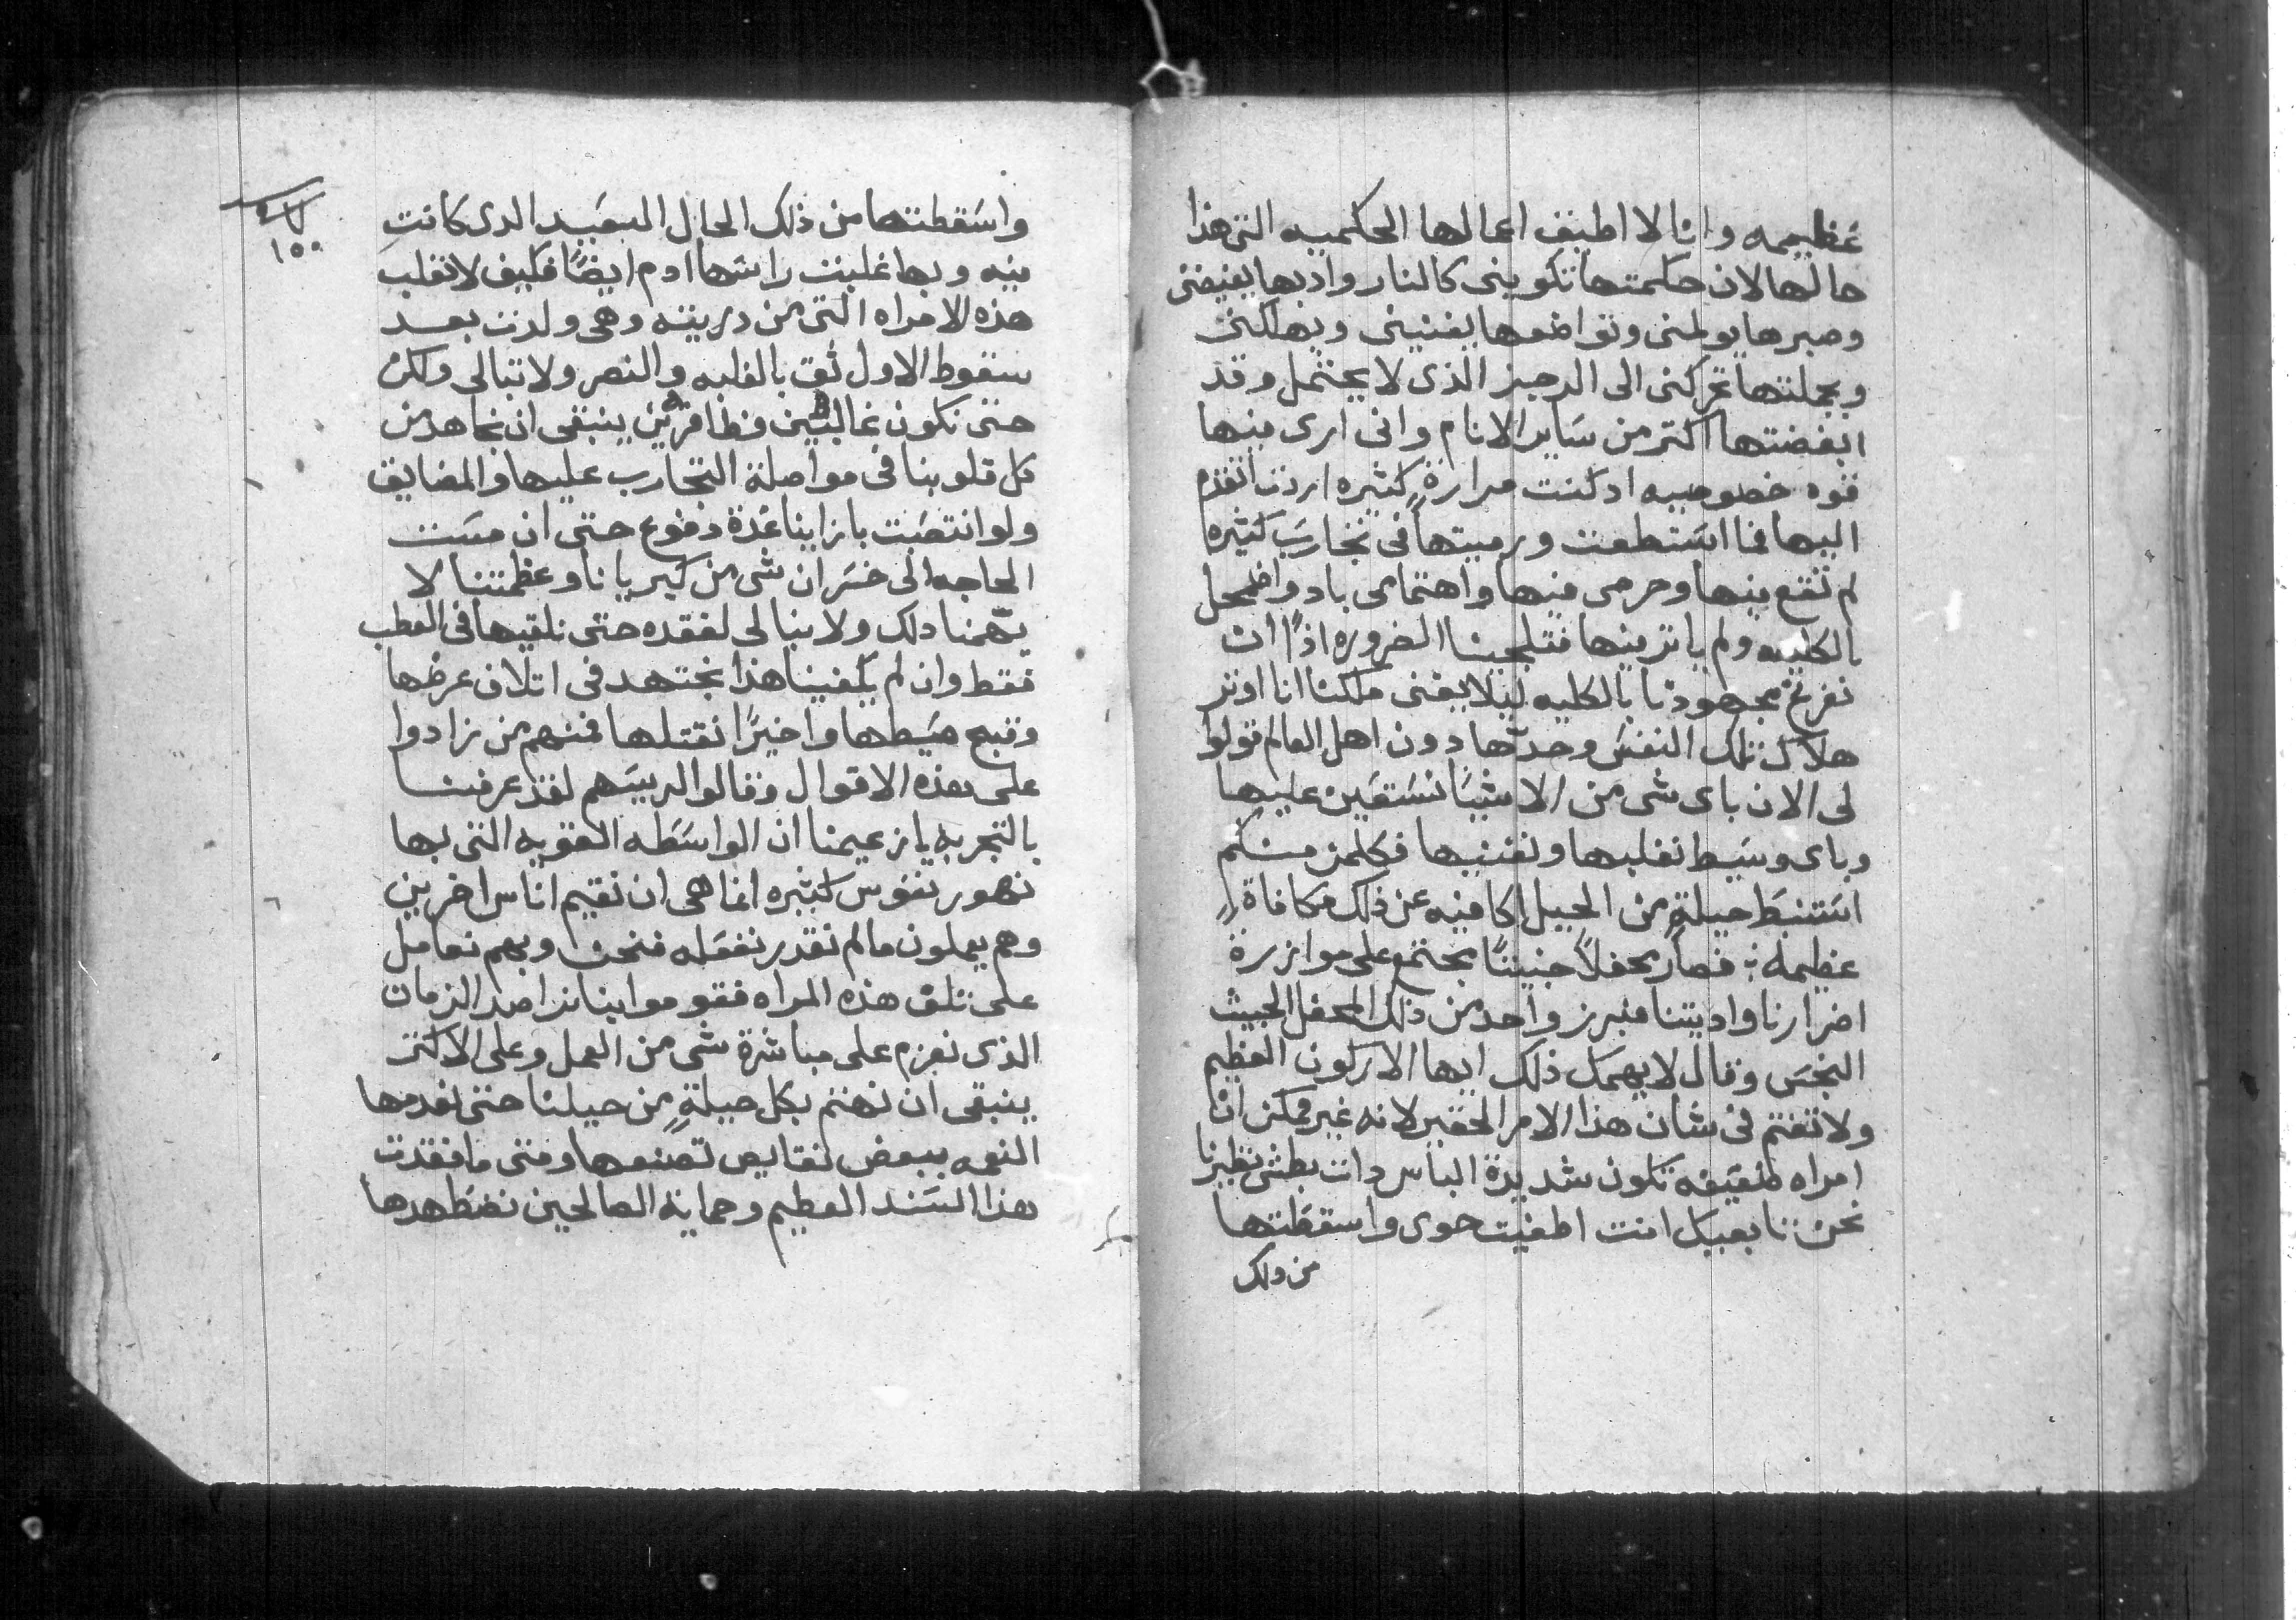 عظيمه وانا لا اطيف اعمالها الحكميه التى هذا
حالها لان حكمتها تكوينى كالنار وادبها يغيضنى
وصبرها يولمنى وتواضعها يفنينى ويهلكنى
وبجملتها تحركنى الى الرجز الذى لا يحتمل وقد
ابغضتها اكتر من ساير الانام وانى ارى بنها
قوه خصوصيه اد كنت مرارة كثيره اردت اتقدم
اليها فما استطعت ورميتها فى تجارب كثيره
لم تقع بنها وحرصى فيها واهتمامى باد واضمحل
بالكليه ولم ياتر فيها فتلجينا الضروره اذاً ان
نفرغ مجهودنا بالكليه ليلا يفنى ملكنا انا اوتر
هلاك تلك النفس وحدها دون اهل العالم قولوا
لى الان باى شى من الاشيا نستعين عليها
وباى وسيط نغلبها ونفنيها فكلمن منكم
استنبط حيلةٍ من الحيل اكافيه عن ذلك مكافاةً
عظيمه ؛ فصار محفلاً خبيثاً مجتمع على موازرة
اضرارنا واديتنا فبرز واحد من ذلك المحفل الخبيث
النجس وقال لا يهمك ذلك ايها الاركون العظيم
ولا تغتم فى شان هذا الامر الحقير لانه غير ممكن ان
امراه ضعيفه تكون شديدة الباس دات بطش نظيرنا
نحن تابعيك انت اطغيت حوى واسقطتها
من دلك
١٥٠
واسقطتها من ذلك الحال السعيد الدى كانت
فيه وبها غلبت راسها ادم ايضاً فكيف لا تغلب
هذه الامراه التى من دريته وهى ولدت بعد
سقوط الاول ثق بالغلبه والنصر ولا تبالى ولكن
حتى نكون غالبين وظافرين ينبغى ان نجاهد من
كل قلوبنا فى مواصلة التجارب عليها والمضايق
ولو انتصبت بازاينا عدة دفوع حتى ان مست
الحاجه الى خسران شى من كبريانا وعظمتنا لا
يهّمنا دلك ولا نبالى لفقده حتى نلقيها فى العطب
فقط وان لم يكفينا هذا نجتهد فى اتلاف عرضها
وقبح صيطها واخيراً نقتلها فمنهم من زادوا
على هذه الاقوال وقالوا لرييسهم لقد عرفنا
بالتجربه يا زعيمنا ان الواسطه القويه التى بها
نهور نفوس كثيره انما هى ان نقيم اناس اخرين
وهم يعملون ما لم نقدر نفعله فنحن وبهم نعامل
على تلف هذه المراه فقوموا بنا نراصد الزمان
الذى نعزم على مباشرة شى من العمل وعلى الاكتر
ينبغى ان نهتم بكل حيلةٍ من حيلنا حتى نعدمها
النعمه ببعض نقايص تصنعها ومتى ما فقدت
هذا السند العظيم وحماية الصالحين نضطهدها